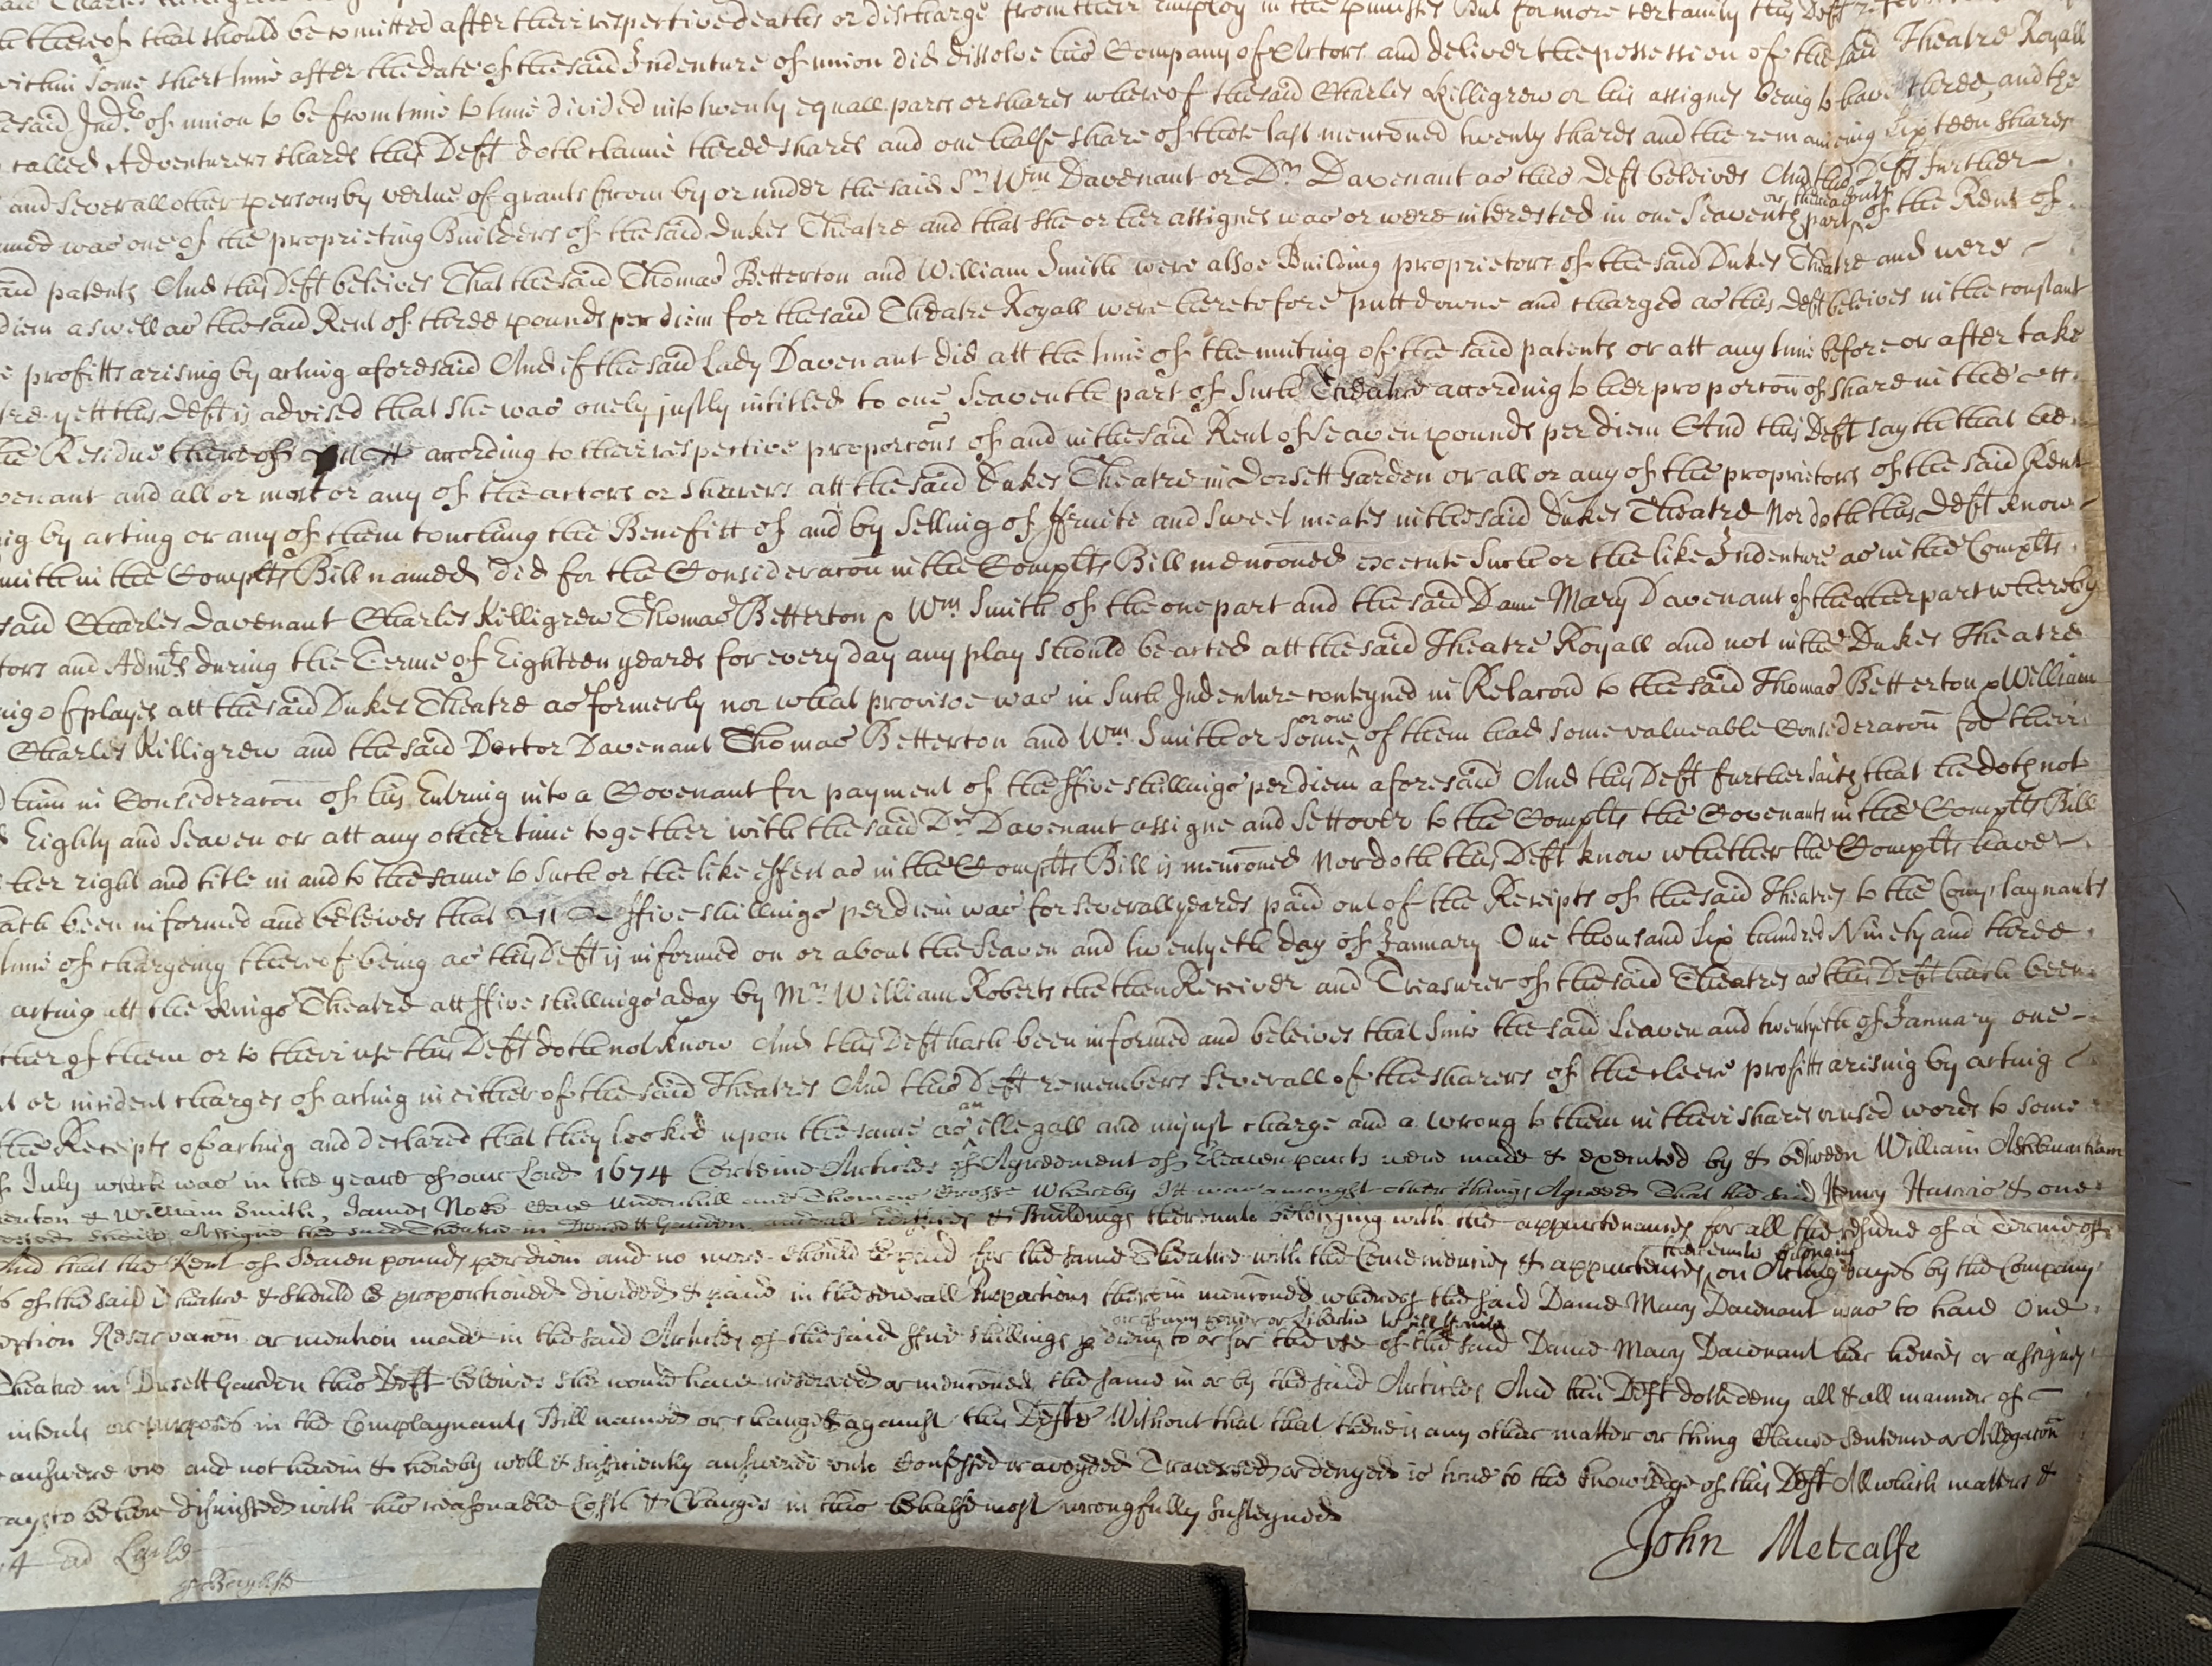 thereof that should be comitted after their respective deaths or discharge from their imploy in the But for more certainty this Deft
within some short time after the date of the said Indenture of union did dissolve his Company of Actors and deliver the possession of the said Theatre Royall
said Indre of union to be from time to time divided into twenty equall parts or shares whereof the said Charles Killigrew or his assignes being to have three, and the
called Adventurers shares this Deft doth claime three shares and one halfe share of those last mentioned twenty shares and the remaineing Sixteen shares
and severall other persons by vertue of grants from by or under the said Sr. Wm Davenant or Dr. Davenant as this Deft beleives And this Deft further
named was one of the proprieting Builders of the said Dukes Theatre and that she or her assignes was or were interested in one Seaventh part of the Rent of
said patents And this Deft beleives That the said Thomas Betterton and William Smith were alsoe Building proprietors of the said Dukes Theatre and were
diem aswell as the said Rent of three pounds per diem for the said Theatre Royall were heretofore putt downe and charged as this Deft beleives in the constant
profitts arising by acting aforesaid And if the said Lady Davenant did att the time of the uniting of the said patents or att any time before or after take
yett this Deft is advised that she was onely justly intitled to one Seaventh part of such Theatre according to her proporcon or share in the
the Residue thereof according to their respective proporcons of and in the said Rent of Seaven pounds per diem And this Deft saith that hee
Davenant and all or most or any of the actors or sharers att the said Dukes Theatre in Dorsett Garden or all or any of the proprietors of the said Rent
by acting or any of them touching the Benefitt of and by Selling of ffruite and Sweet meates in the said Dukes Theatre Nor doth this Deft know
Smith in the Complts Bill named did for the Consideracon in the Complts Bill mencioned execute such or the like Indenture as in the Complts
said Charles Davenant Charles Killigrew Thomas Betterton & Wm Smith of the one part and the said Dame Mary Davenant of the other part whereby
and Admrs during the Terme of Eighteen yeares for every day any play should be acted att the said Theatre Royall and not in the Dukes Theatre
of playes att the said Dukes Theatre as formerly nor what provisoe was in such Indenture conteyned in Relacon to the said Thomas Betterton & William
Charles Killigrew and the said Doctor Davenant Thomas Betterton and Wm. Smith or some or one of them had some valueable Consideracon for their
him in Consideracon of his Entring into a Covenant for payment of the ffive shillings per diem aforesaid And this Deft further saith that he doth not
Eighty and Seaven or att any other time together with the said Dr. Davenant assigne and Sett over to the Complts the Covenants in the Complts Bill
her right and title in and to the same to such or the like effect as in the Complts Bill is mencioned Nor doth this Deft know whether the Complts have
hath been informed and beleives that ffive shillings per diem was for severall yeares paid out of the Receipts of the said Theatres to the Complaynants
time of chargeing thereof being as this Deft is informed on or about the Seaven and twentyeth day of January One thousand Six hundred Ninety and three
acting att the Kings Theatre att ffive shillings a day by Mr. William Roberts the then Receiver and Treasurer of the said Theatres as this Deft hath been
either of them or to their use this Deft doth not know And this Deft hath been informed and beleives that since the said Seaven and twentyeth of January one
or incident charges of acting in either of the said Theatres And this Deft remembers severall of the sharers of the cleere profitts arising by acting
the Receipts of acting and declared that they looked upon the same as an illegall and unjust charge and a wrong to them in their shares & used words to some
July which was in the yeare of our Lord 1674 Certeine Articles of Agreement of Eleaven parts were made & executed by & between William Ashburnham
& William Smith, James Nokes Cave Underhill and Thomas Crosse Whereby It was amongst other things Agreed That the said Henry Harris & one
Assigne the said Theatre in Dorsett Garden and all Edifices & Buildings thereunto belonging with the appurtenances for all the residue of a Terme of
And that the Rent of Seaven pounds per diem and no more should be paid for the same Theatre with the Conveniencies & appurtences thereunto belonging on Acting dayes by the Company
of the said Theatre & should be proportioned divided & paid in the severall Proportions therein mencioned whereof the said Dame Mary Davenant was to have One
Reservacon or mention made in the said Articles of the said ffive shillings p diem to or for the use of the said Dame Mary Davenant her heires or assignes
Theatre in Dorsett Garden this Deft beleives she would have reserved or mencioned the same in or by the said Articles And this Deft doth deny all & all manner of
intents or purposes in the Complaynants Bill named or charged against this Defte Without that that there is any other matter or thing Clause sentence or Allegacon
answere unto and not herein & hereby well & sufficiently answered unto Confessed or avoyded Traversed or denyed is true to the knowledge of this Deft All which matters &
to be hence dismissed with his reasonable Costs & Charges in this behalfe most wrongfully susteyned
John Metcalfe